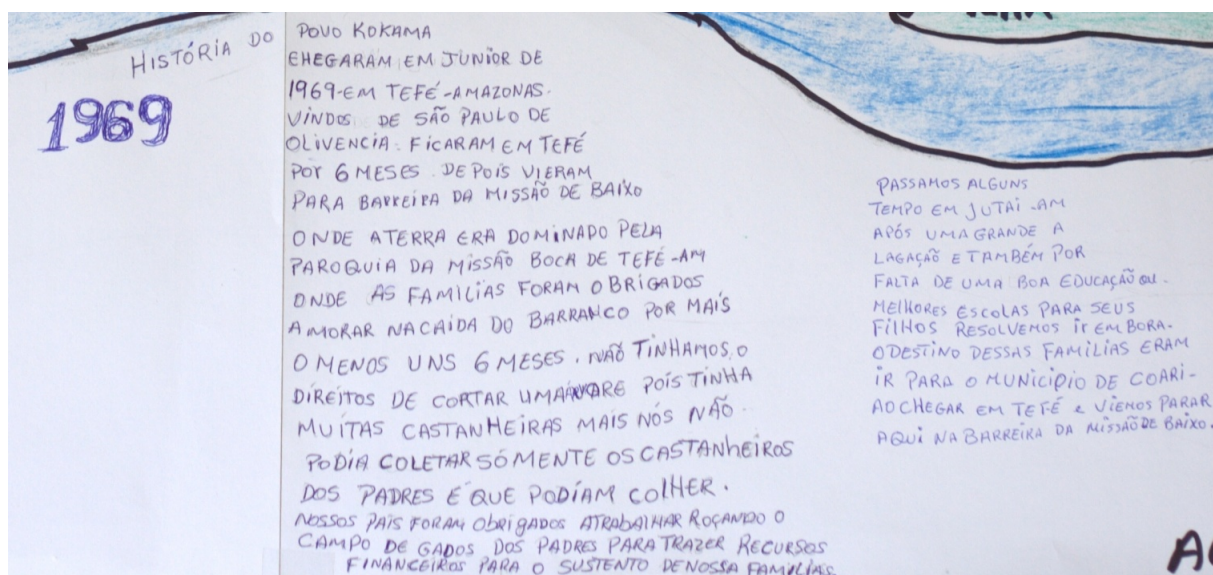 HISTÓRIA DO POVO KOKAMA
1969
EHEGARAM EM JUNIOR DE
1969-EM TEFÉ-AMAZONAS.
VINDOS DE SÃO PAULO DE
OLIVENCIA. FICARAM EM TEFÉ
POR 6 MESES. DEPOIS VIERAM
PARA BARREIRA DA MISSÃO DE BAIXO
ONDE ATERRA ERA DOMINADO PELA
PAROQUIA DA MISSÃO BOCA DE TEFÉ-AM
ONDE AS FAMILIAS FORAM OBRIGADOS
A MORAR NA CAIDA DO BARRANCO POR MAIS
O MENOS UNS 6 MESES. NÃO TINHAMOS O
DIREITOS DE CORTAR UMA POIS TINHA
MUITAS CASTANHEIRAS MAIS NÓS NÃO
PODIA COLETAR SÓMENTE OS CASTANHEIROS
DOS PADRES É QUE PODIAM COLHER.
NOSSOS PAIS FORAM ObRIGADOS ATRABALHAR ROÇANDO O
CAMPO DE GADOS DOS PADRES PARA TRAZER RECURSOS
FINANCEIROS PARA O SUSTENTO DE NOSSA FAMILIAS
PASSAMOS ALGUNS
TEMPO EM JUTAI-AM
APÓS UMA GRANDE A
LAGAÇÃO E TAMBÉM POR
FALTA DE UMA BOA EDUCAÇÃO OU.
MELHORES ESCOLAS PARA SEUS
FILHOS RESOLVEMOS IR EM BORA.
O DESTINO DESSAS FAMILIAS ERAM
IR PARA O MUNICIPIO DE COARI-
AO CHEGAR EM TEFÉ e VIEMOS PARAR
AQUI NA BARREIRA DA MISSÃO DE BAIXO.